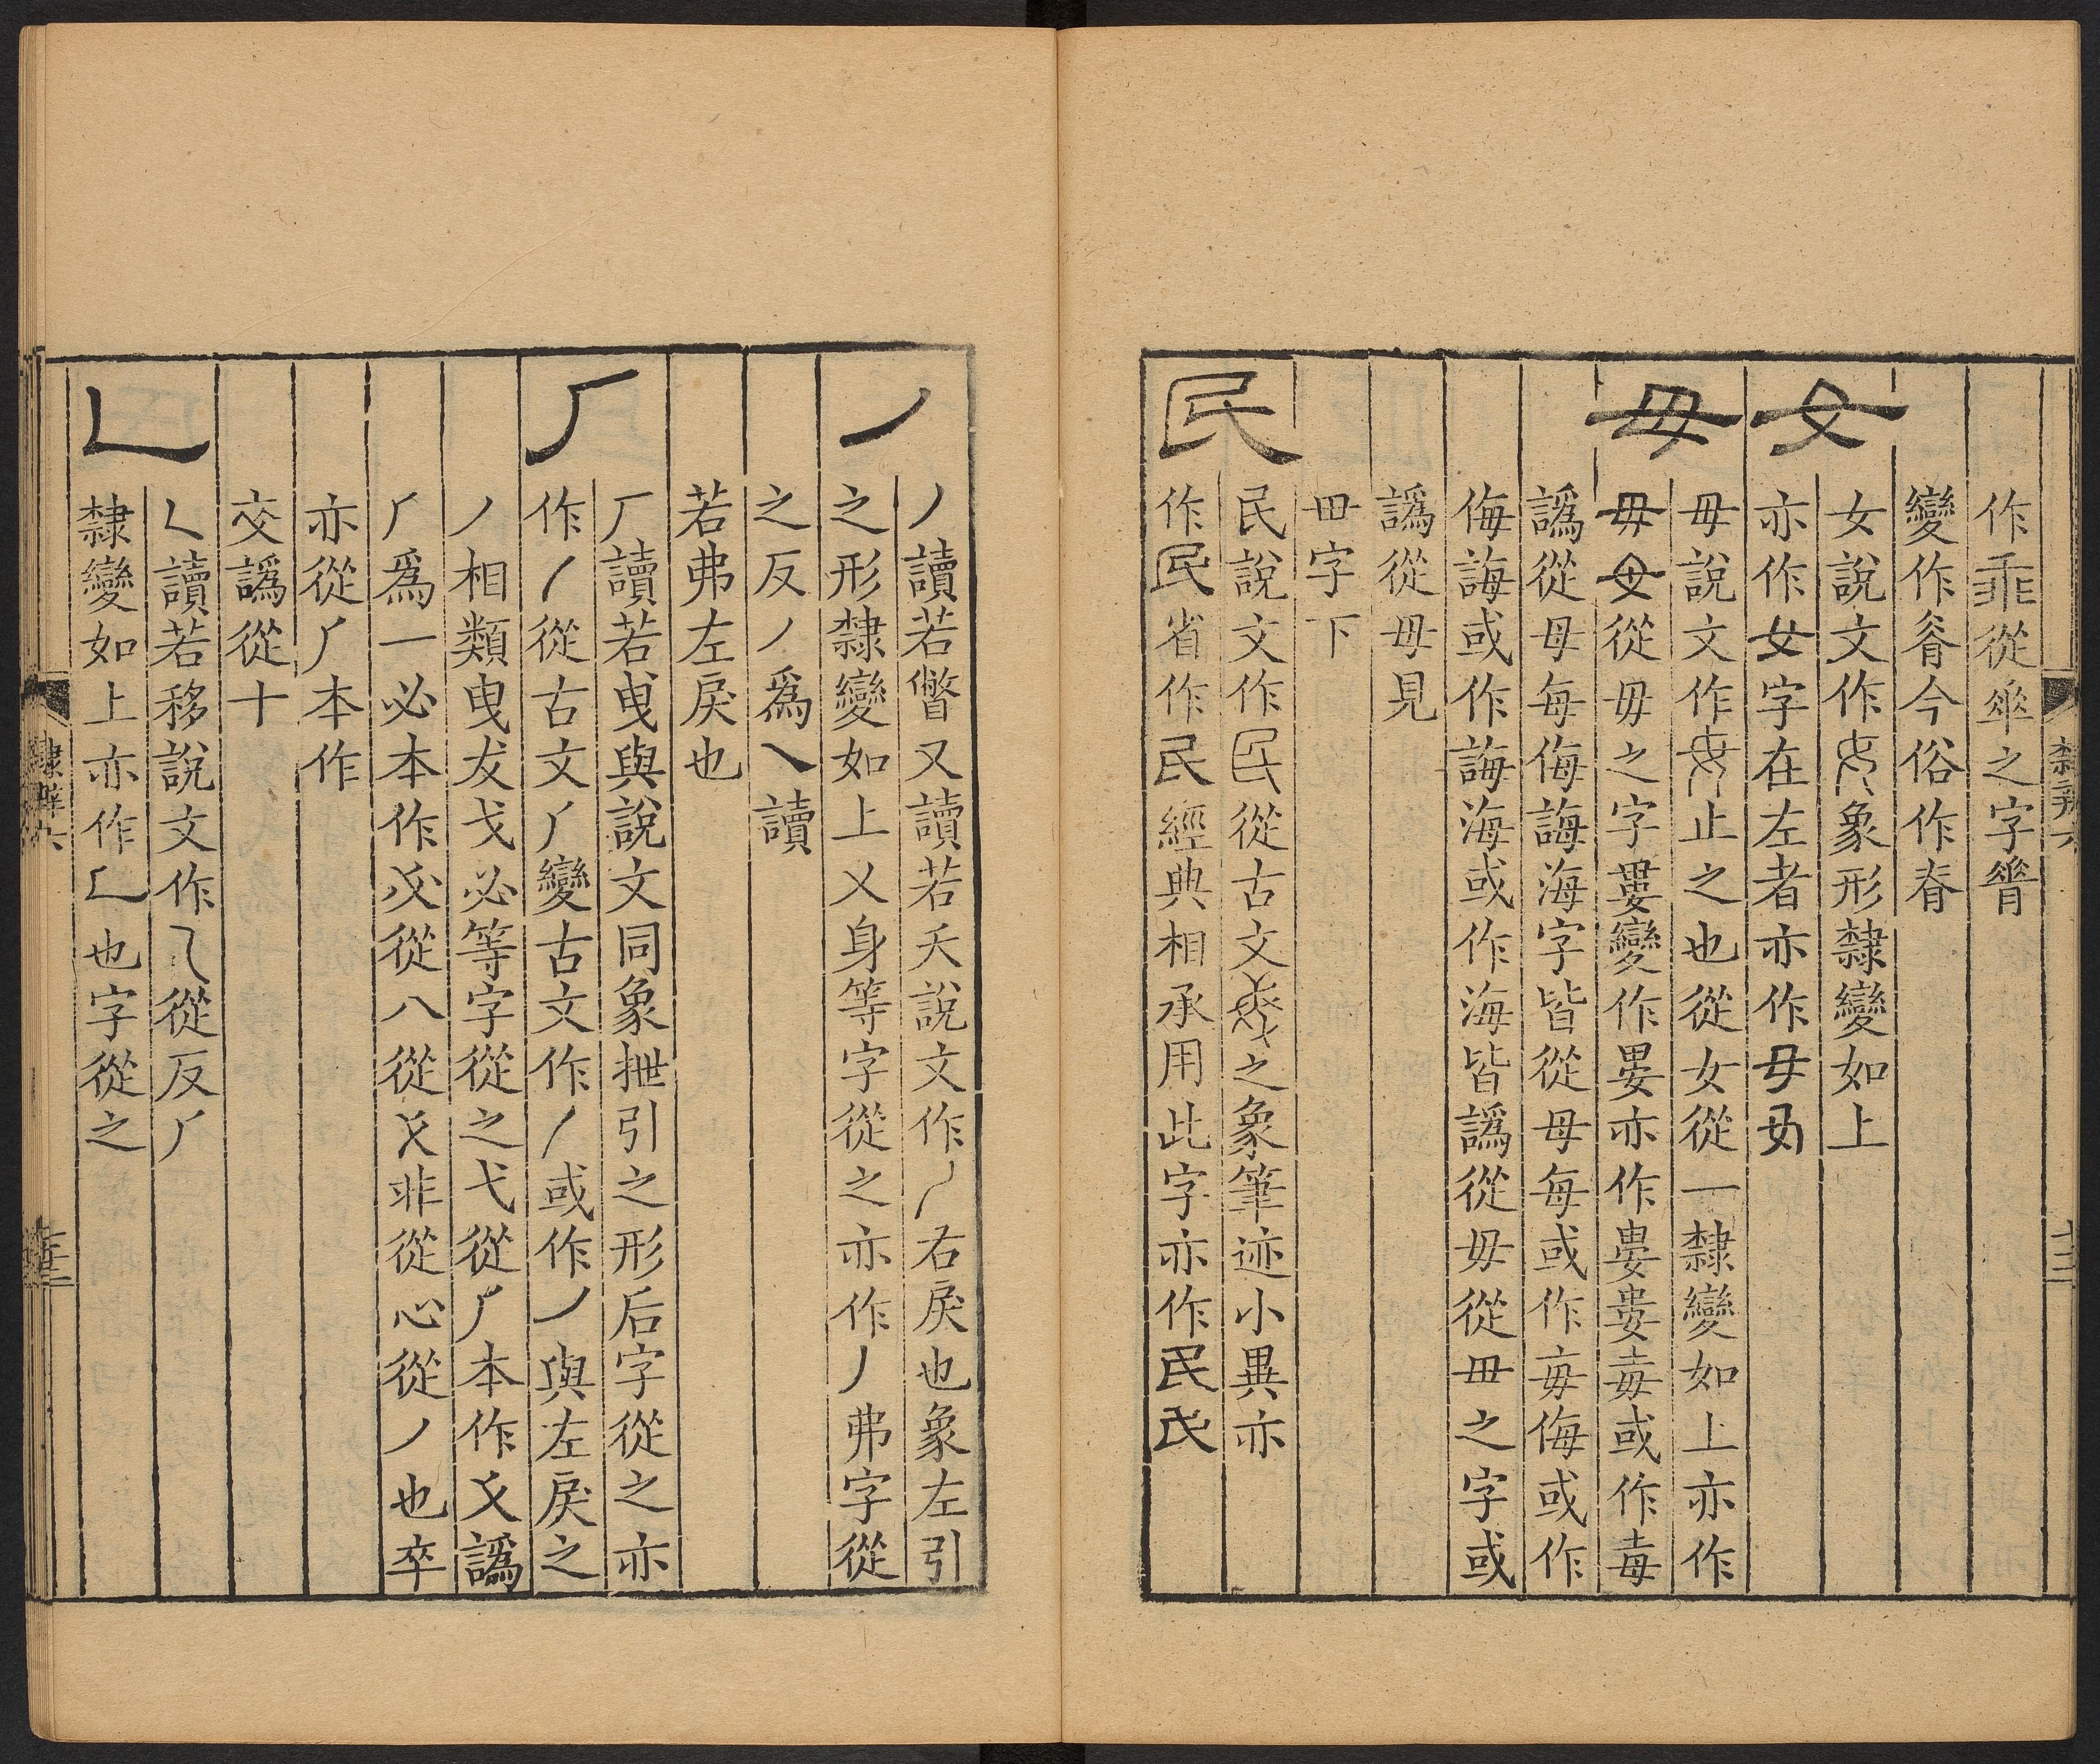 作乖從𠦬之字𦟝
變作脊今俗作脊
女
女說文作象形隸變如上
亦作女字在左者亦作
毋
毋說文作止之也從女從一隸變如上亦作
毋從毋之字婁變作婁亦作婁婁毒或作毒
譌從母每侮誨海字皆從母每或作毎侮或作
侮誨或作誨海或作海皆譌從毋從毌之字或
譌從毋見
毌字下
民
民說文作從古文之象筆迹小異亦
作民省作民經典相承用此字亦作民民
隸辨六
十三
丿
丿讀若瞥又讀若夭說文作丿右戾也象左引
之形隸變如上乂身等字從之亦作丿弗字從
之反丿爲乀讀
若弗左戾也
𠂆
𠂆讀若曳與說文同象抴引之形后字從之亦
作丿從古文𠂆變古文作丿或作丿與左戾之
丿相類曳犮戈必等字從之弋從𠂆本作㐅譌
𠂆爲一必本作从八從弋非從心從丿也卒
亦從𠂆本作
交譌從十
乚
乀讀若移說文作乁從反𠂆
隸變如上亦作乚也字從之
隸辨六
十三